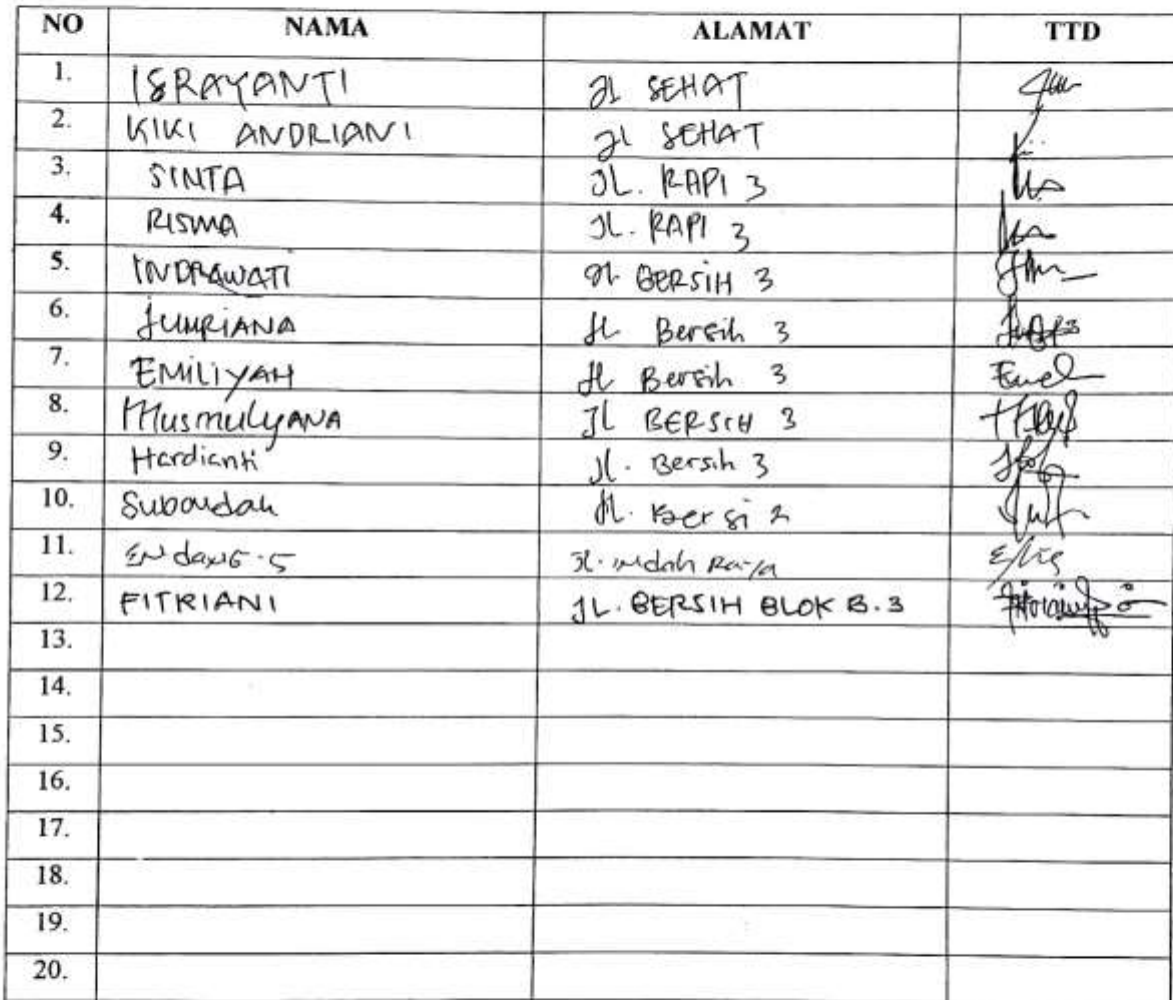 NO NAMA ALAMAT TTD
1. ISRAYANTI Jl SEHAT
2. KIKI ANDRIANI Jl SEHAT
3. SINTA JL. RAPI 3
4. RISMA JL. RAPI 3
5. INDRAWATI Jl BERSIH 3
6. JUMRIANA Jl Bersih 3
7. EMILIYAH Jl Bersih 3
8. MusmulyANA JL BERSIH 3
9. Hardianti Jl. Bersih 3
10. Jl. Bersi 2
11. ENdaNG.S Jl. indah Raya
12. FITRIANI JL. BERSIH BLOK B.3
13.
14.
15.
16.
17.
18.
19.
20.